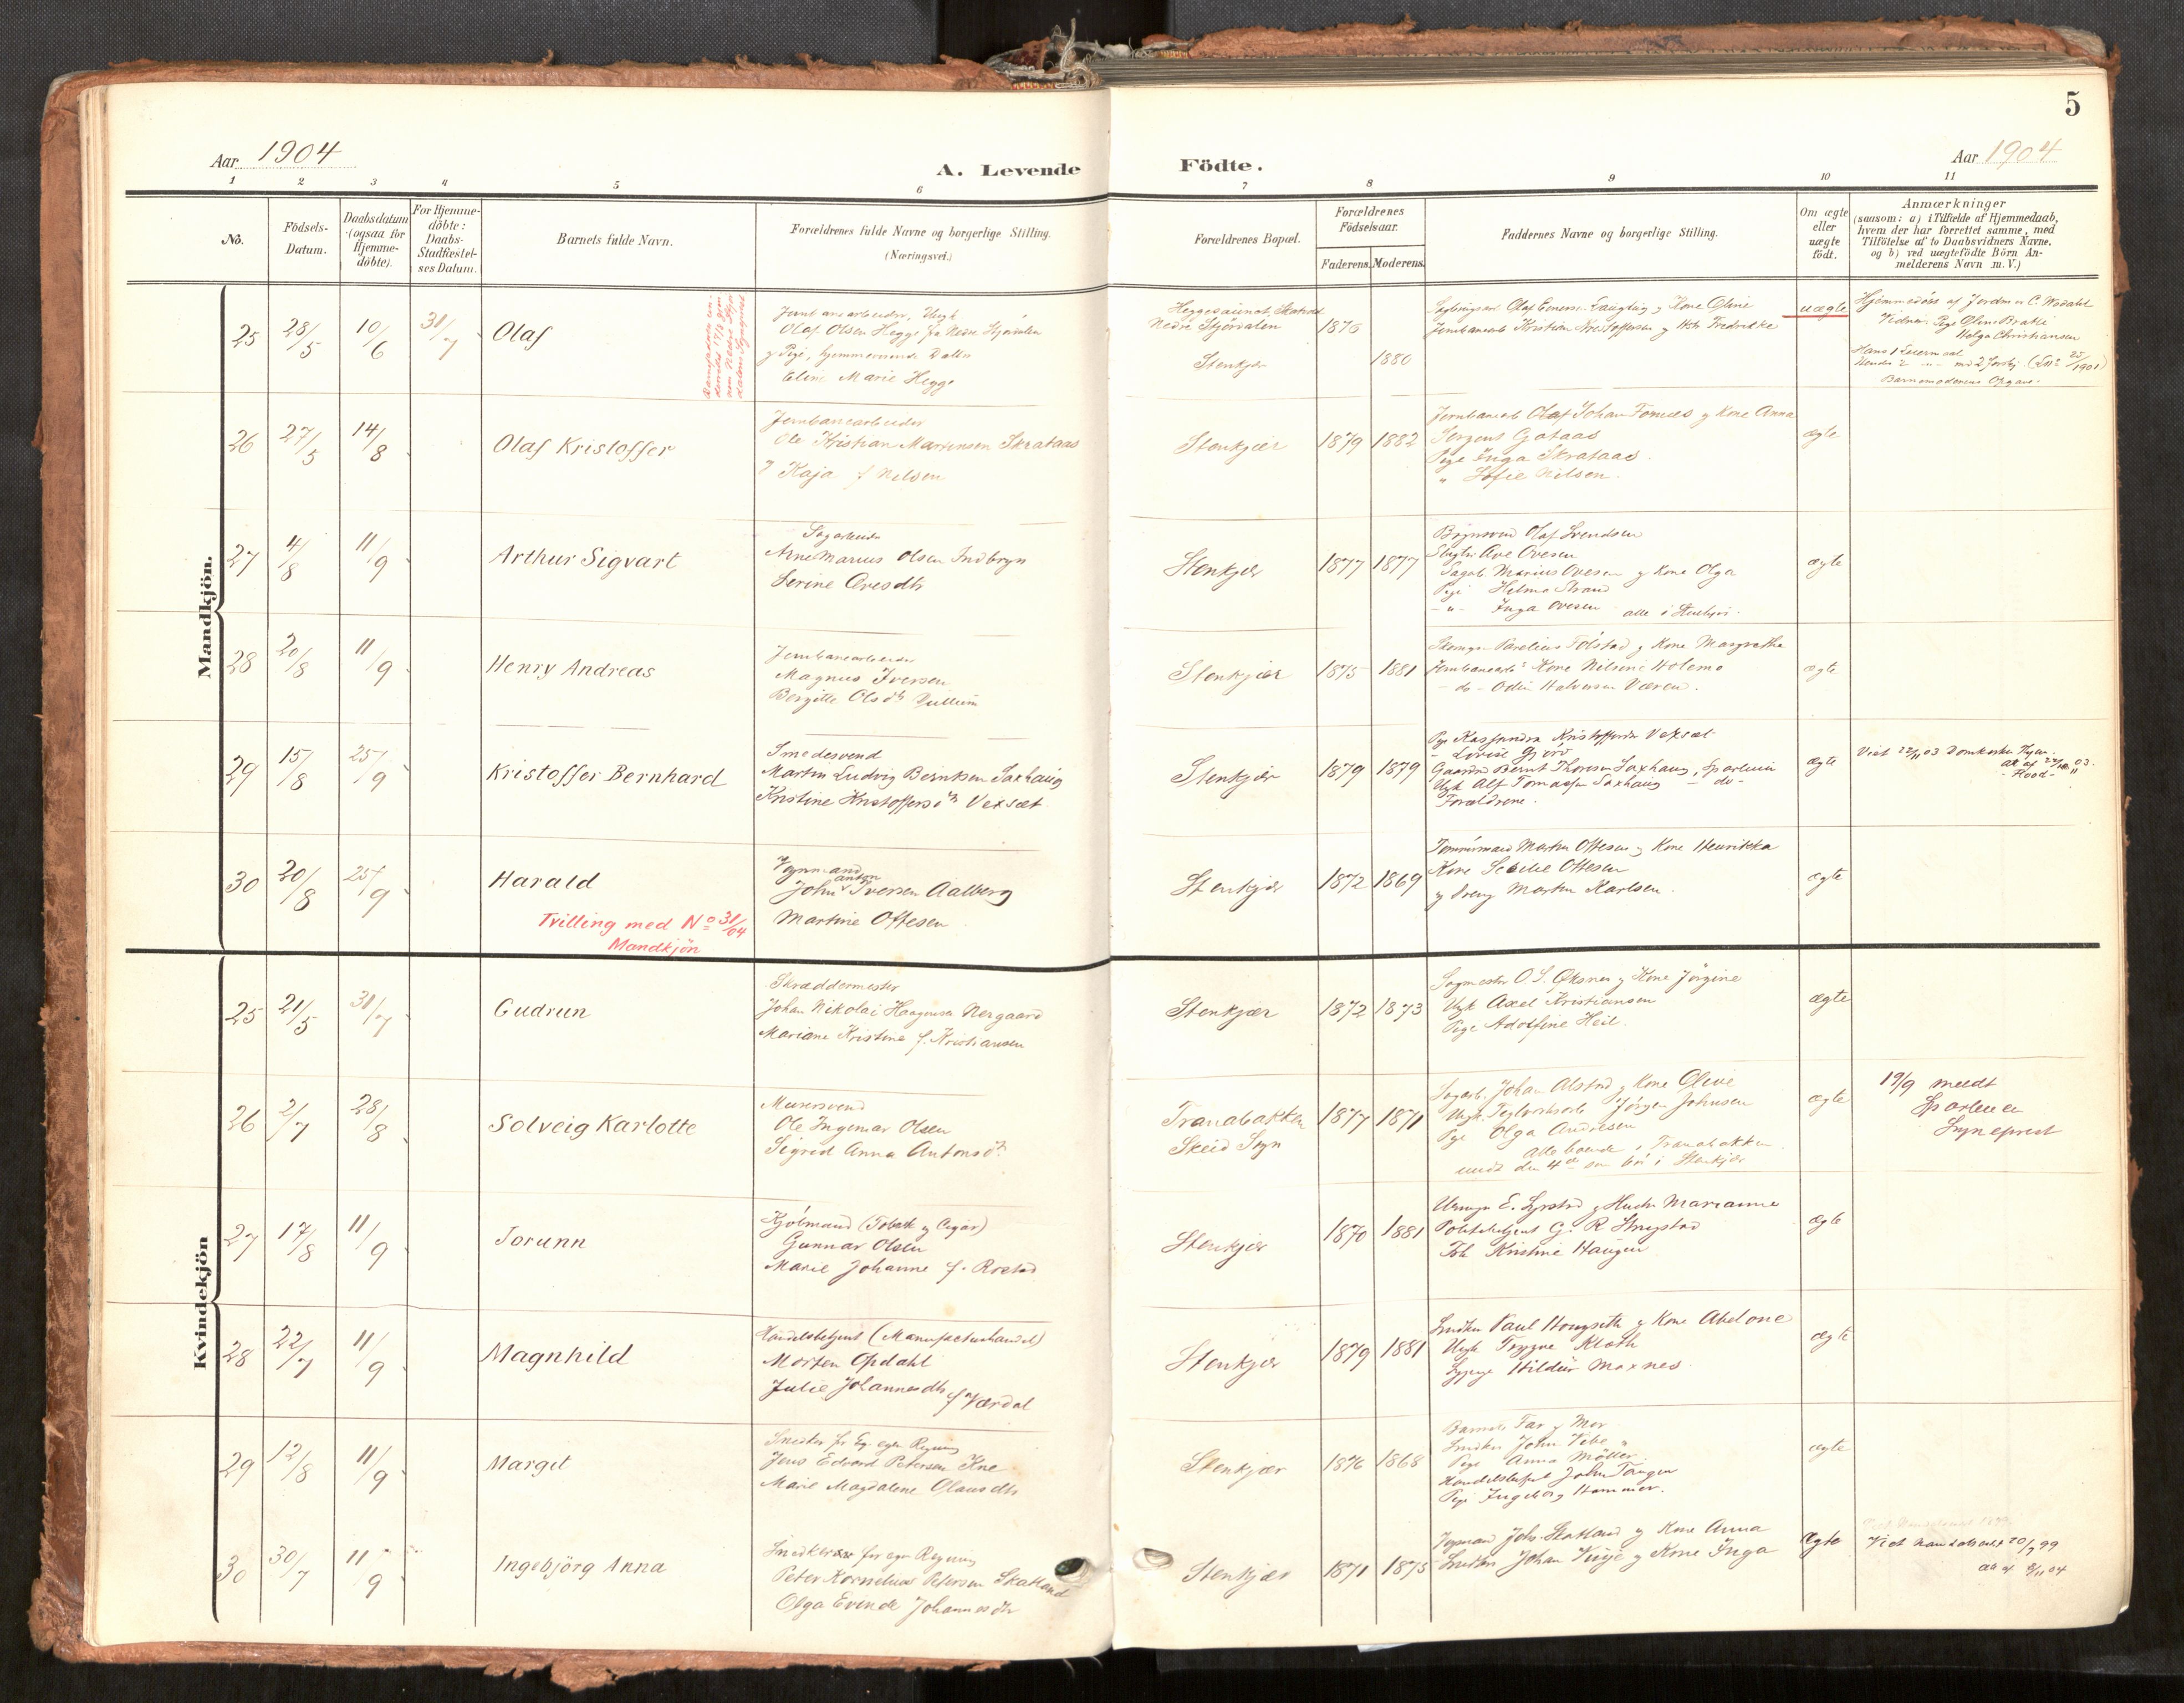 5
Aar 1904
A. Levende
Födte.
Aar 1904
1 2 3 4 5 6 7 8 9 10 11
No.
Födsels-
Datum.
Daabsdatum
(ogsaa for
Hjemme-
döbte).
For Hjemme-
döbte:
Daabs-
Stadfæstel-
ses Datum.
Barnets fulde Navn.
Forældrenes fulde Navne og borgerlige Stilling.
(Næringsvei.)
Forældrenes Bopæl.
Forældrenes
Födselsaar.
Faderens. Moderens.
Faddernes Navne og borgerlige Stilling.
Om ægte
eller
uægte
födt.
Anmærkninger
(saasom: a) i Tilfælde af Hjemmedaab,
hvem der har forrettet samme, med
Tilföielse af to Daabsvidners Navne.
og b) ved uægtefödte Börn An-
melderens Navn m.V.)
Mandkjön.
25 28/5 10/6 31/7 Olaf
Jernbanearbeider, Ungk
Olaf Olsen Hegge fra Nedre Stjørdalen
g Pige, hjemmeværende Datter
Eline Marie Hegge
Nedre Stjørdalen 1876
Stenkjær 1880
Jernbanearb Kristian Kristoffersen g Fredrikke
uægte
Hjemmedøbt af Jordm C. Wodahl
Vidner: Pige Oline Brattli
Helga Christiansen
Hans 1 Leiermaal
Barnemoderens Opgave.
26 27/5 14/8 Olaf Kristoffer
Jernbanearbeider
Ole Kristian Martinsen Skrataas
g Kaja f Nilsen
Stenkjær 1879 1882
Jernbanearb Olaf Johan Fornes g Kone Anna
Sergent Gotaas
Pige Inga Skrataas.
" Sofie Nilsen.
ægte
27 4/8 11/9 Arthur Sigvart
Sagarbeider
Arne Marius Olsen Indbryn
Serine Ovesdtr
Stenkjær 1877 1877
Olaf Svendsen
Ave Ovesen
Sagarb Marius Ovesen g Kone Olga
Pige Helma Strand
- " - Inga Ovesen alle i Stenkjær.
ægte
28 20/8 11/9 Henry Andreas
Jernbanearbeider
Magnus Iversen
Bergitte Olsdtr
Stenkjær 1875 1881
Parelius Følstad g Kone Margrethe
Jernbanearb Kone Nilsine Holemo
- do - Odin Halvorsen Væren.
ægte
29 15/8 25/9 Kristoffer Bernhard
Smedesvend
Martin Ludvig Berntsen Saxhaug
Kristine Kristoffersdtr Vexsæt
Stenkjær 1879 1879
Pige Kassandra Kristoffersdtr Vexsæt
- Lovise
Gaardbr Bernt Thoresen Saxhaug, Sparbuen
Ungk Alf Tomassen Saxhaug - do -
Forældrene.
ægte
Viet 22/11 03
30 20/8 25/9 Harald
Tvilling med No 31/04
Mandkjön
anton
John Iversen Aalberg
Martine Ottesen
Stenkjær 1872 1869
Tømmermand Morten Ottesen g Kone Henrikka
Kone Secilie Ottesen
g Dreng Morten Karlsen.
ægte
Kvindekjön
25 21/5 31/7 Gudrun
Skræddermester
Johan Nikolai Haagensen Nergaard
Mariane Kristine f. Kristiansen
Stenkjær 1872 1873
Sagmester O.S. Øksnes g Kone Jørgine
Ungk Axel Kristiansen
Pige Adolfine Heil.
ægte
26 2/7 28/8 Solveig Karlotte
Murersvend
Ole Ingemar Olsen
Sigrid Anna Antonsdtr
Tranabakken
Skeid Sogn
1877 1871
Sagarb. Johan Alstad g Kone Olive
Ungk Teglverksarb Jørgen Johnsen
Pige Olga Andresen
Alle boende i Tranabakken
undt den 4de som bor i Stenkjær
ægte
19/9 meldt
Sparbuen
Sogneprest
27 17/8 11/9 Torunn
Kjøbmand (Tobak g Cigar)
Gunnar Olsen
Marie Johanne f. Rostad
Stenkjær 1870 1881
E. Lyrstad g Hustru Marianne
Politibetjent G. R. Strugstad
Frk Kristine Haugen
ægte
28 22/7 11/9 Magnhild
Handelsbetjent (Manufacturhandel)
Morten Opdahl
Julie Johannesdtr
f Værdal
Stenkjær 1879 1881
Snedker Paul Hougseth g Kone Abelone
Ungk Trygve Kloth
Sypige Hildur Moxnes
ægte
29 12/8 11/9 Margit
Snedker for egen Regning
Jens Edvard Petersen Kne
Marie Magdalene Olausdtr
Stenkjær 1876 1868
Barnets Far g Mor
Snedker John Vibe
Pige Anna Möller
Handelsbetjent John Tangen
Pige Ingeborg Hammer.
ægte
30 30/7 11/9 Ingebjörg Anna
Snedker for egen Regning
Peter Kornelius Petersen Skatland
Olga Evinde Johannesdtr
Stenkjær 1871 1875
Johs. Skatland g Kone Anna
Snedker Johan Vinje g Kone Inga
Ægte
Viet 20/7 99